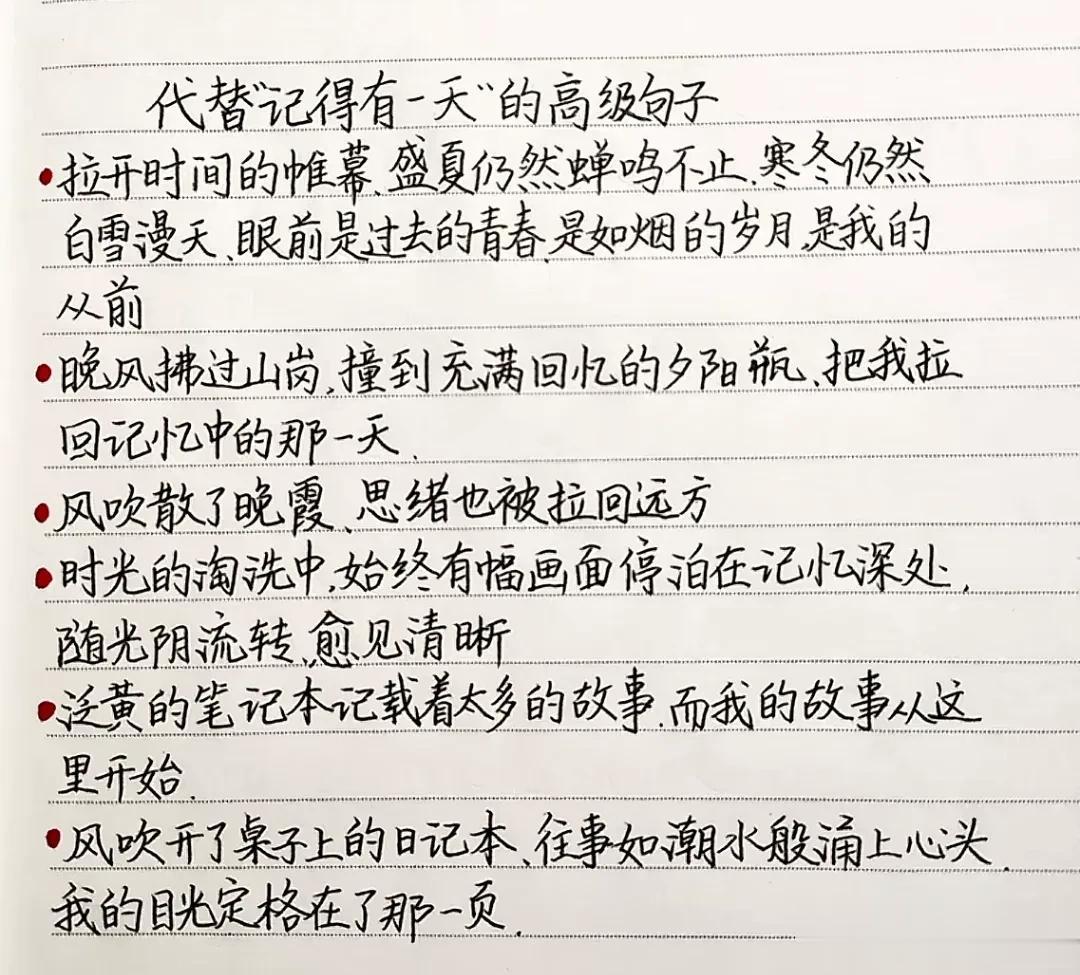 代替“记得有一天”的高级句子
•拉开时间的帷幕、盛夏仍然蝉鸣不止、寒冬仍然
白雪漫天、眼前是过去的青春、是如烟的岁月、是我的
从前
•晚风拂过山岗,撞到充满回忆的夕阳瓶、把我拉
回记忆中的那一天.
•风吹散了晚霞、思绪也被拉回远方
•时光的淘洗中,始终有幅画面停泊在记忆深处,
随光阴流转,愈见清晰
•泛黄的笔记本记载着太多的故事.而我的故事从这
里开始.
•风吹开了桌子上的日记本、往事如潮水般涌上心头.
我的目光定格在了那一页.